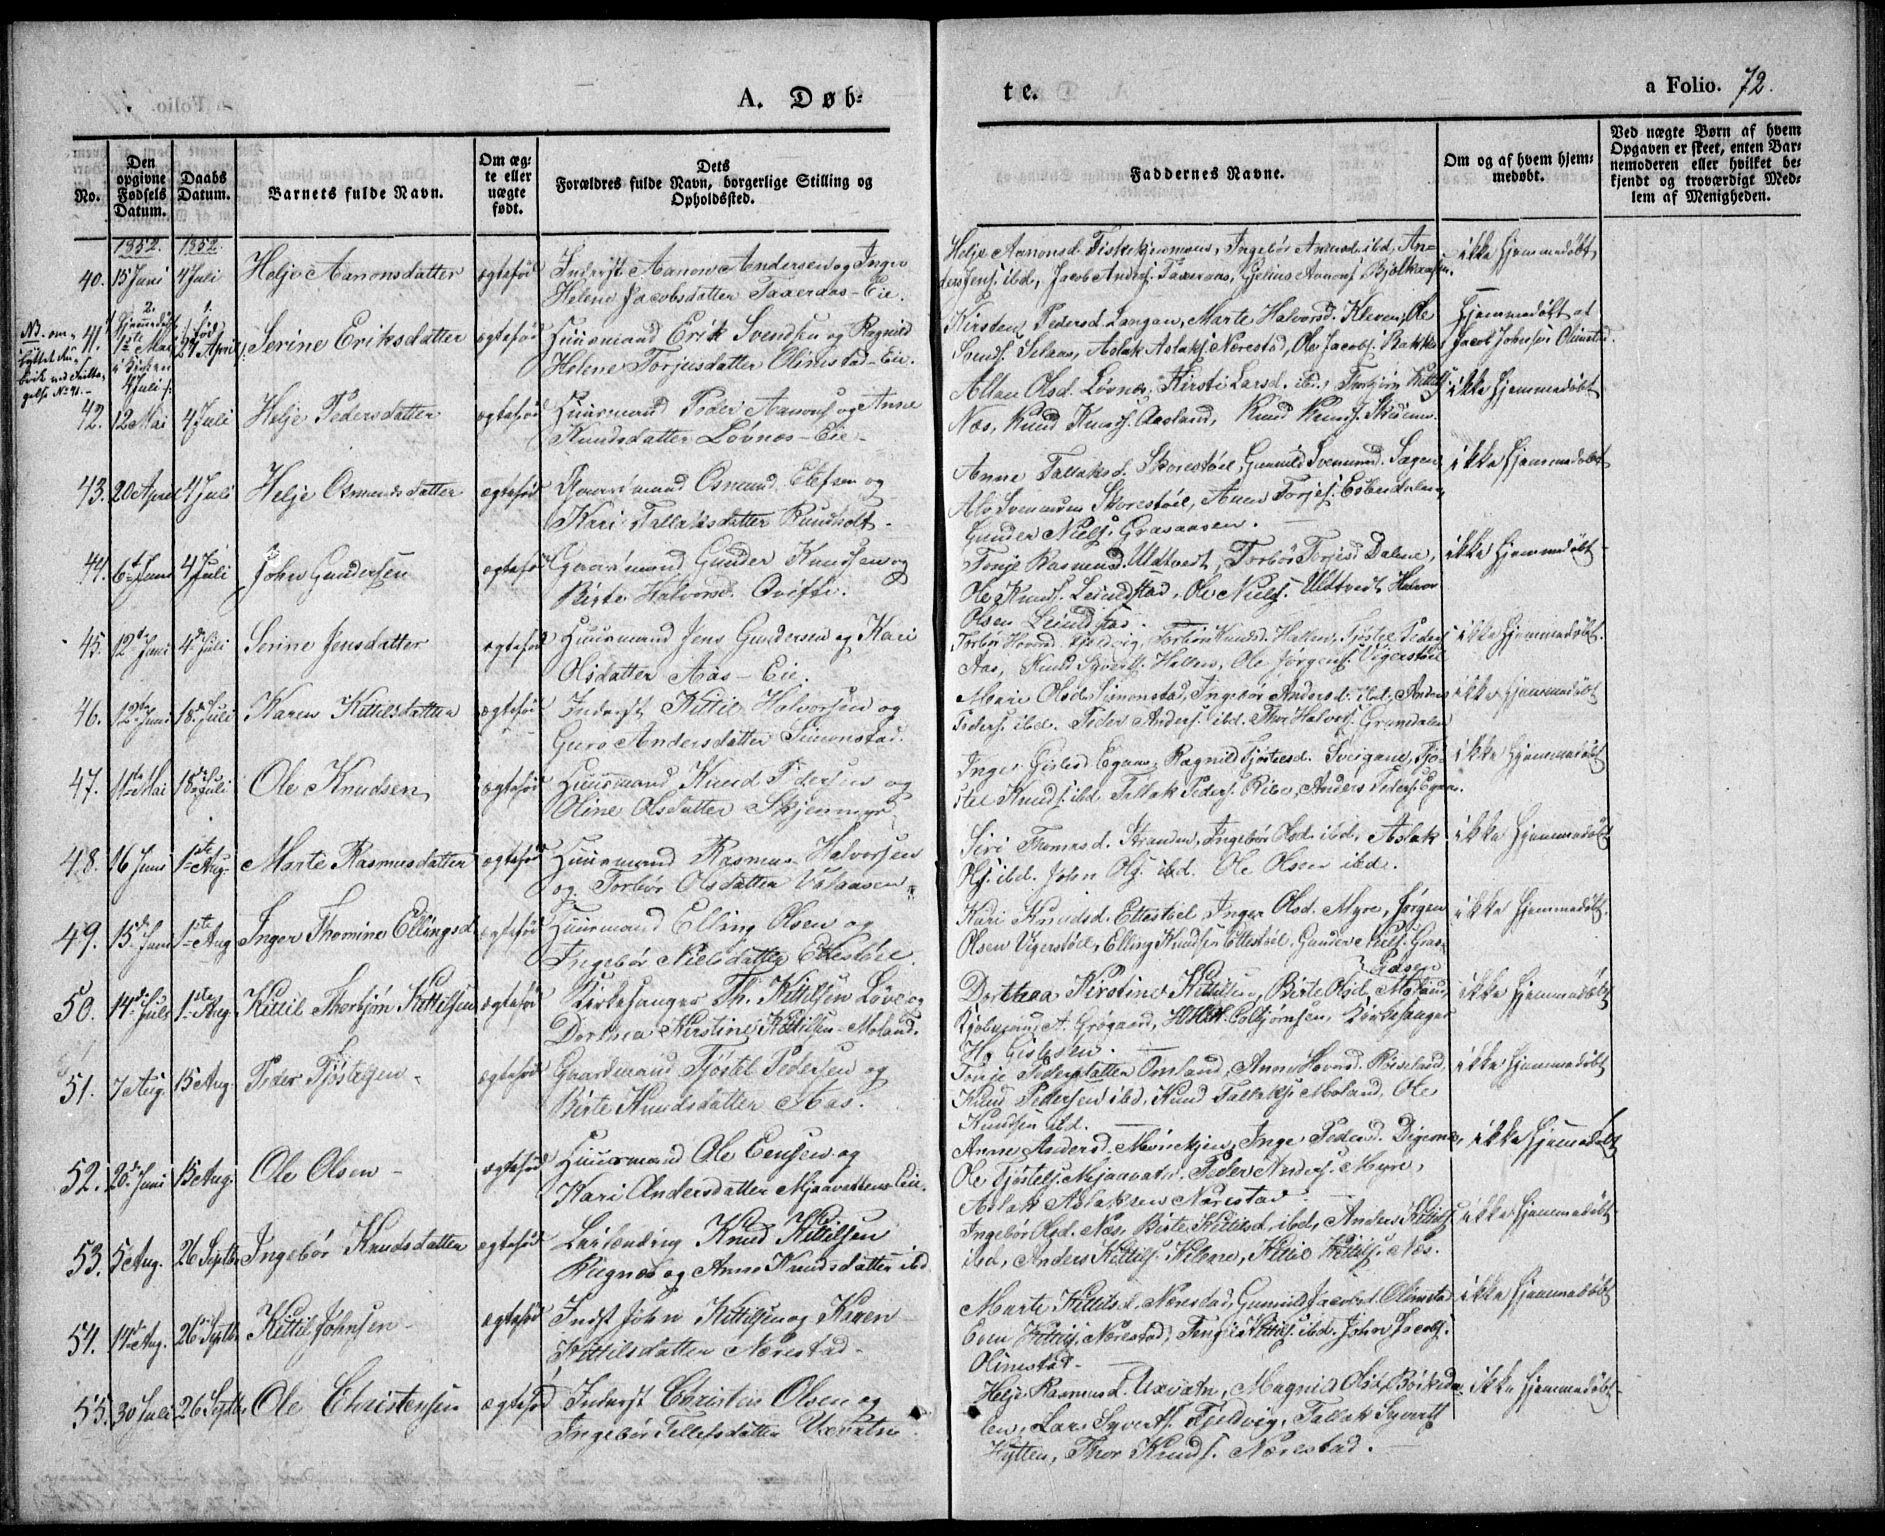 A. Døb-
te.
a Folio. 72.
No.
Den opgivne Fødsels Datum.
Daabs Datum.
Barnets fulde Navn.
Om ægte eller uægte født.
Dets Forældres fulde Navn, borgerlige Stilling og Opholdssted.
Faddernes Navne.
Om og af hvem hjemmedøbt.
Ved uægte Børn af hvem Opgaven er skeet, enten Barnemoderen eller hvilket bekjendt og troværdigt Medlem af Menigheden.
1852. 1852.
40. 15 Juni 4 Juli Helje Aanonsdatter ægtefød Inderst Aanon Andersen og Inger
Helene Jacobsdatter Taxeraas-Eie.
Helje Aanonsd. Fiskekjernmoen, Ingebør ibd. An-
ders Jens. ibd, Jacob Anders. Taxeraas, Aanons. ikke hjemmedøbt
41. Hjemmedøbt 1ste Mai i Kirken 4 Juli født 27 April Serine Eriksdatter ægtefød Huusmand Erik Svendsen og Ragnild
Helene Torjusdatter Olimstad-Eie.
Kirsten Pedersd. Langan, Marte Halvorsd. Kleven, Ole
Svends. Selaas, Aslak Aslaks. Nærestad, Ole Jacobs. Bakke
Hjemmedøbt af Jacob Johnsen Olimstad.
42. 12 Mai 4 Juli Helje Pedersdatter ægtefød Huusmand Peder Aanons. og Anne
Knudsdatter Løvnes-Eie.
Olsd. Løvnes, Kirsti Larsd. ibd, Thorbjørn Kittils.
Næs, Knud Knuds. Aasland, Knud Knuds. ikke hjemmedøbt
43. 20 April 4 Juli Helje Osmundsdatter ægtefød Gaardmand Osmund Elefsen og
Kari Tallaksdatter Rundholt.
Anne Tallaksd. Skorestøel, Gunnild Svenund. Sagen
Alv Svenunsen Skorestøel, Aanen Torjes. Espedalen,
Gunder Niels. Grasaasen. ikke hjemmedøbt
44. 6te Juni 4 Juli John Gundersen ægtefød Gaardmand Gunder Knudsen og
Birte Halvorsd. Qvifte.
Tonje Rasmusd. Udtvedt, Torbør Torjesd. Dalene,
Ole Knuds. Leindstad, Ole Niels. Udtvedt, Halvor
Olsen Leindstad. ikke hjemmedøbt
45. 12te Juni 4de Juli Serine Jensdatter ægtefød Huusmand Jens Gundersen og Kari
Olsdatter Aas-Eie.
Torbør Havord. Fjeldvig, Torbør Knudsd. Hellen, Tjøstel Peders.
Aas, Knud Syverts. Hellen, Ole Jørgens. Vigerstøel ikke hjemmedøbt.
46. 12te Juni 18de Juli Karen Kittilsdatter ægtefød Inderst Kittil Halvorsen og
Guro Andersdatter Simonstad.
Mari Olsd. Simonstad, Ingebør Andersd. ibd, Anders
Peders. ibd. Peder Anders. ibd. Thor Halvors. Grundalen ikke hjemmedøbt
47. 11te Mai 18de Juli Ole Knudsen ægtefød Huusmand Knud Pedersen og
Oline Olsdatter Skjeimyr
Inger Gislesd. Egaas, Ragnild Tjøstelsd. Tjø-
stel Knuds. ibd. Tallak Peders. Anders Peders. Egaas. ikke hjemmedøbt
48. 16 Juni 1ste Aug. Marte Rasmusdatter ægtefød Huusmand Rasmus Halvorsen
og Torbør Olsdatter Valaasen.
Siri Thomasd. Stranden, Ingebør Olsd. ibd, Aslak
Ols. ibd. John Ols. ibd. Ole Olsen ibd. ikke hjemmedøbt
49. 15de Juni 1ste Aug Inger Thomine Ellingsd. ægtefød Huusmand Elling Olsen og
Ingebør Nielsdatter Ettestøel.
Kari Knudsd. Ettestøel, Inger Olsd. Myre, Jørgen
Olsen Vigerstøel, Elling Knudsen Ettestøel, Gunder Niels. Gras-
aasen ikke hjemmedøbt.
50. 14de Juli 1ste Aug. Kittil Thorbjørn Kittilsen ægtefød Kirkesanger Th. Kittilsen Løve og
Dorthea Kirstine Kittilsen-Moland.
Dorthea Kirstine Kittilsen, Birte Olsd. Moland,
Kjøbmand A. Grøgaard, Colbjørnsen, Kirkesanger
H. Gislesen. ikke hjemmedøbt
51. 7 Aug. 15 Aug. Peder Tjøstelsen ægtefød Gaardmand Tjøstel Pedersen og
Birte Knudsdatter Aas.
Tonje Pedersdatter Omland, Anne Havord. Riseland,
Knud Pedersen ibd, Knud Tallaks. Moland, Ole
Knudsen ibd. ikke hjemmedøbt
52. 20de Juni 15 Aug. Ole Olsen ægtefød Huusmand Ole Eensen og
Kari Andersdatter Mjaavattens-Eie.
Anne Andersd. Mørekjen, Inger Pedersd. Digernes,
Ole Tjøstels. Mjaavatn, Peder Anders. Myre,
Aslak Aslaksen Nærestad. ikke hjemmedøbt
53. 5 Aug. 26 Septbr Ingebør Knudsdatter ægtefød Leilænding Knud Kittilsen
Hugnes og Anne Knudsdatter ibd.
Ingebør Olsd. Næs, Birte Kittilsd. ibd, Anders Kittils.
ibd, Anders Kittils. Kilene, Kittil Kittils. Næs. ikke hjemmedøbt
54. 14de Aug. 26 Septbr Kittil Johnsen ægtefød Indst John Kittilsen og Karen
Kittilsdatter Nærestad.
Marte Kittilsd. Nærestad, Gunnild Jacobsd. Olimstad
Even Kittils. Nærestad, Kittils. ibd. John Jacobs.
Olimstad. ikke hjemmedøbt
55. 30 Juli 26 Septbr Ole Christensen ægtefød Inderst Christen Olsen og
Ingebør Tellefsdatter Uxvatn.
Helje Rasmusd. Uxvatn, Magnild Olsd. Børkeda-
len, Lars Syverts. Fjeldvig, Tallak Syverts.
Hytten, Thor Knuds. Nærestad. ikke hjemmedøbt